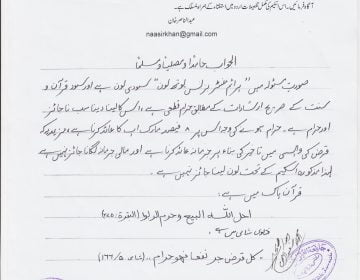 آگاہ فرمائیں۔ اس اسکیم کی مکمل تفصیلات اردو میں استفتاء کے ہمراہ منسلک ہے۔
عبدالناصر خان
naasirkhan@gmail.com
الجواب حامدًا ومصلیًا ومسلمًا
صورت مسئولہ میں "پرائم منسٹر یوتھ لون" سودی لون ہے اور سود قرآن و
سنت کے صریح ارشادات کے مطابق حرام قطعی ہے، اس کا لینا دینا سب ناجائز
اور حرام ہے۔ حرام ہونے کی وجہ اس پر 8 فیصد مارک اپ کا عائد کرنا ہے، مزید یہ کہ
قرض کی واپسی میں تاخیر کی بناء پر جرمانہ عائد کرنا ہے اور مالی جرمانہ لگانا جائز نہیں ہے
لہذا مذکورہ اسکیم کے تحت لون لینا جائز نہیں ہے۔
قرآن پاک میں ہے:
احل اللہ البیع وحرم الربوا (البقرۃ: ۲۷۵)
فتاویٰ شامی میں ہے
کل قرض جر نفعا فھو حرام .. (شامی ۵/۱۶۶)